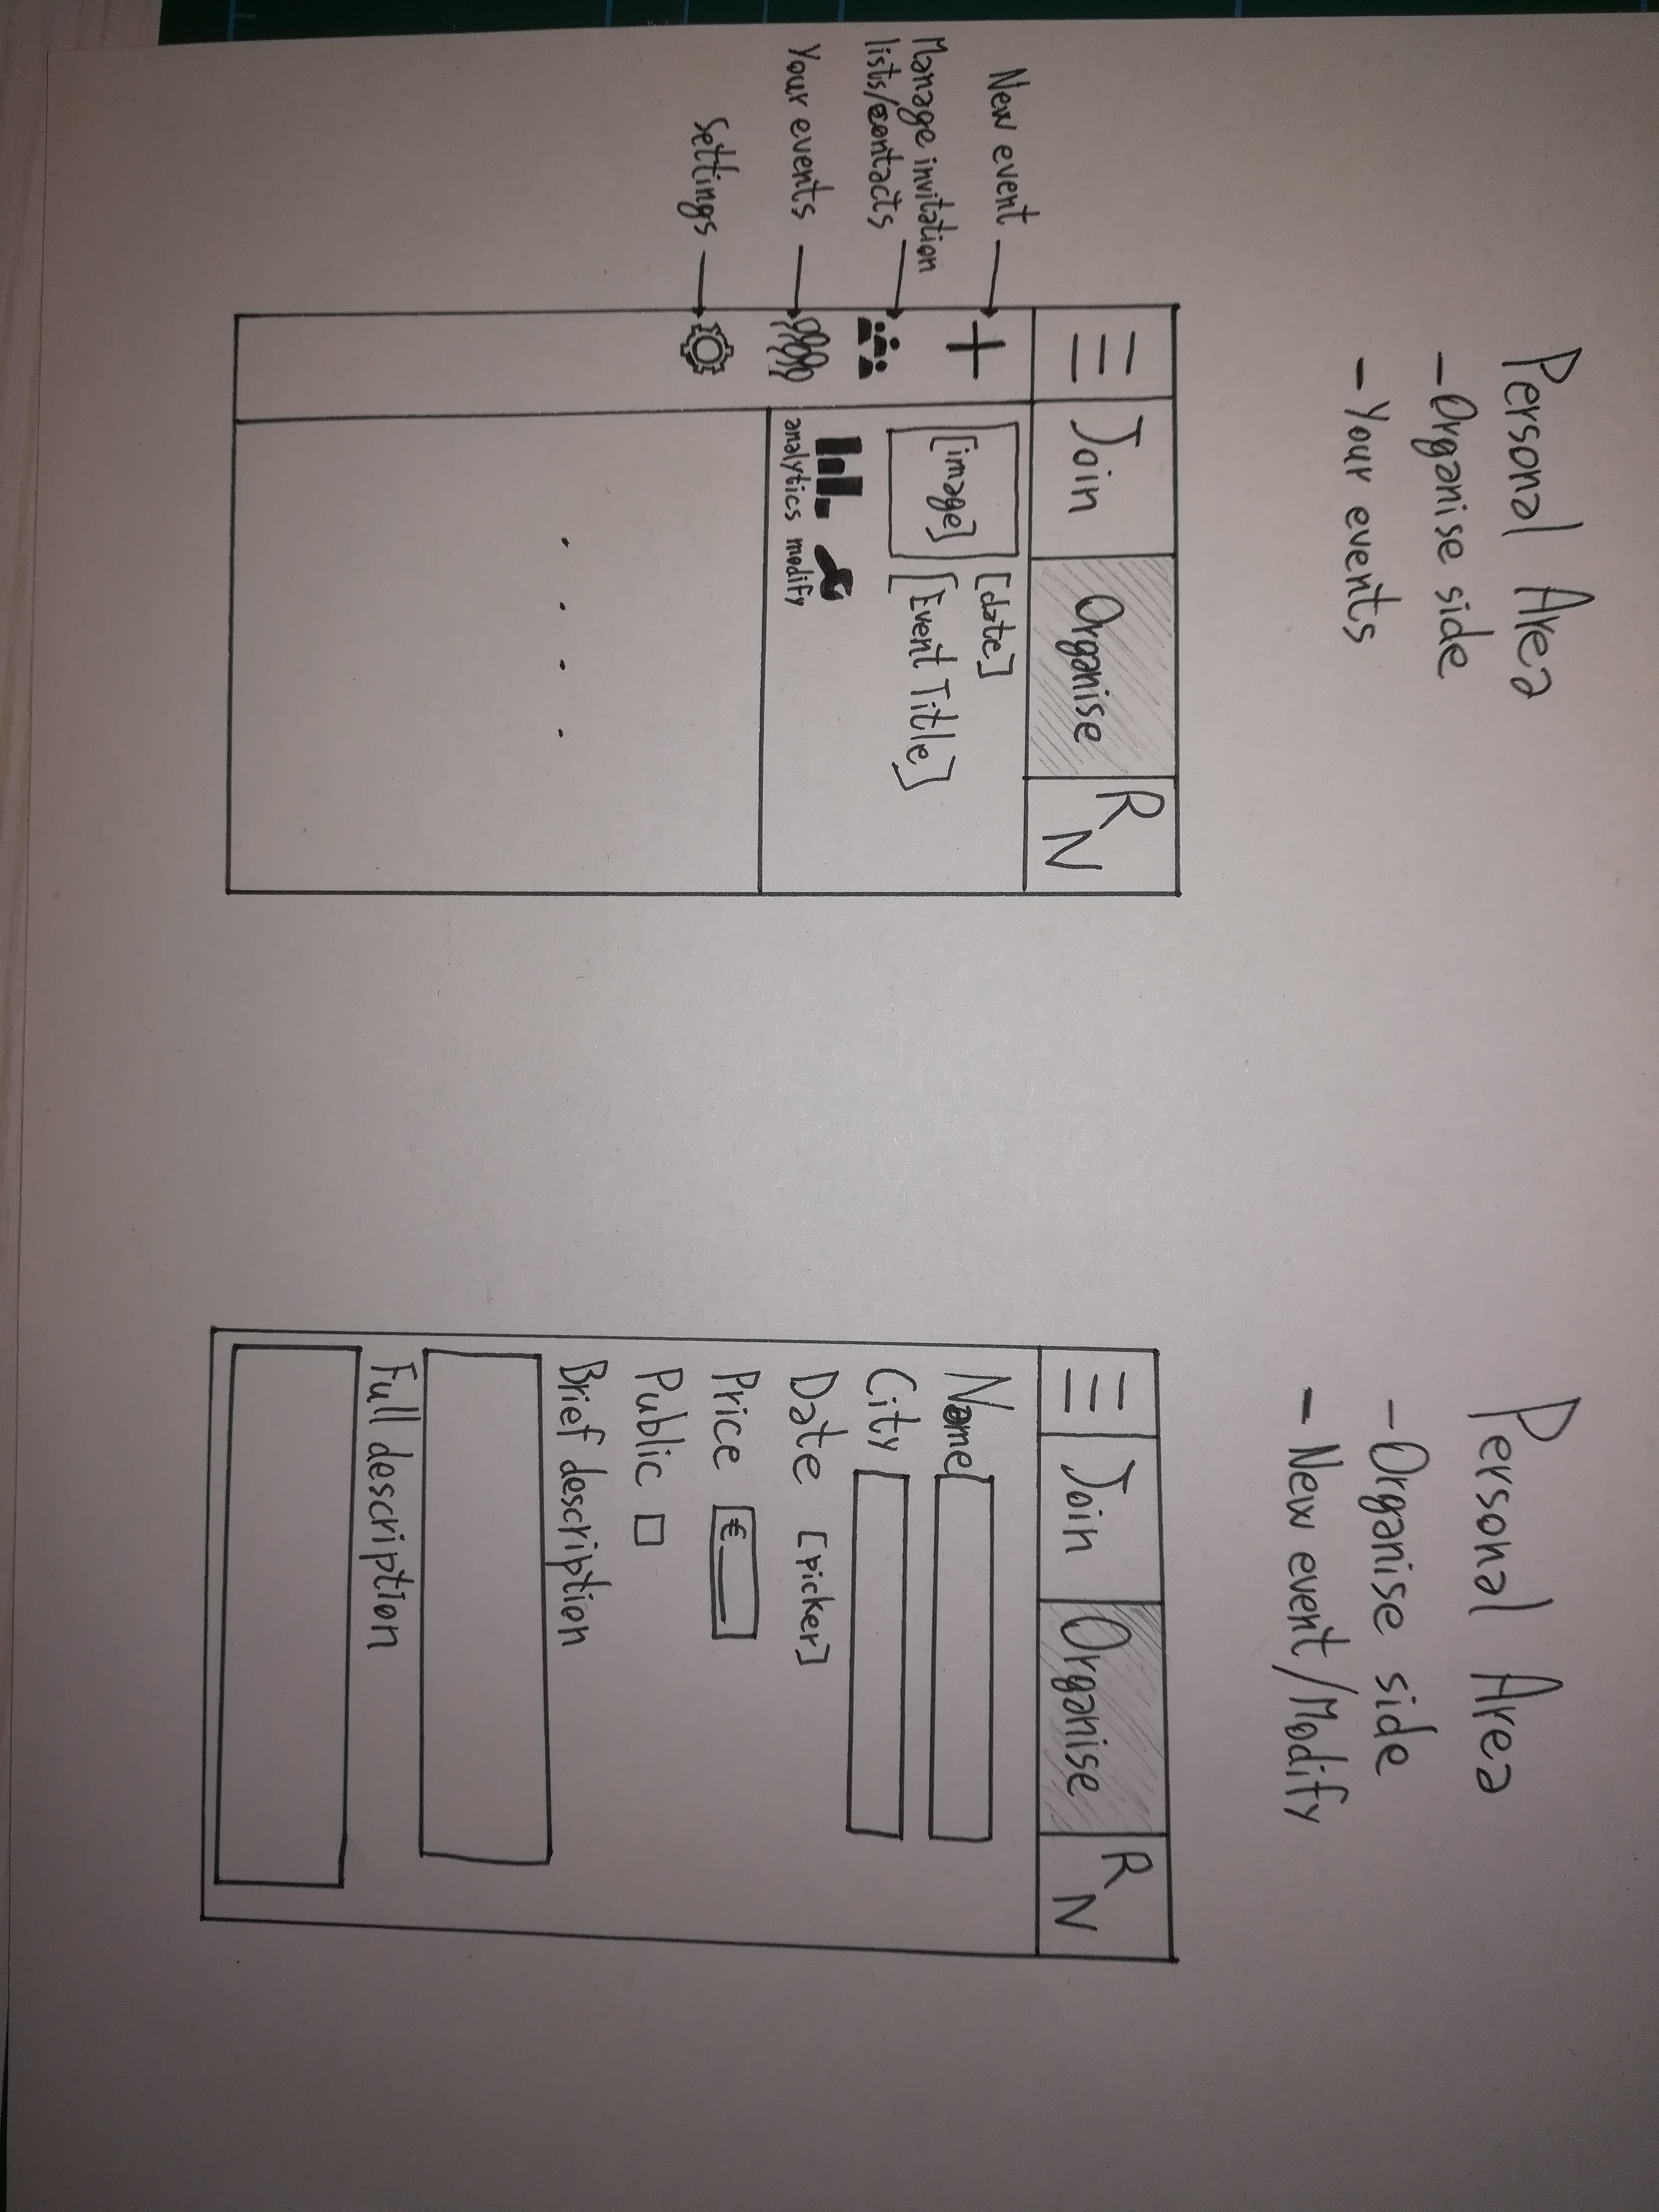 Personal Area
- Organise side
- Your events
Join
Organise
R
N
New event
Manage invitation
lists/contacts
Your events
Settings
[image]
[date]
[Event Title]
analytics
modify
. . . .
Personal Area
- Organise side
- New event/Modify
Join
Organise
R
N
Name
City
Date [picker]
Price €
Public
Brief description
Full description